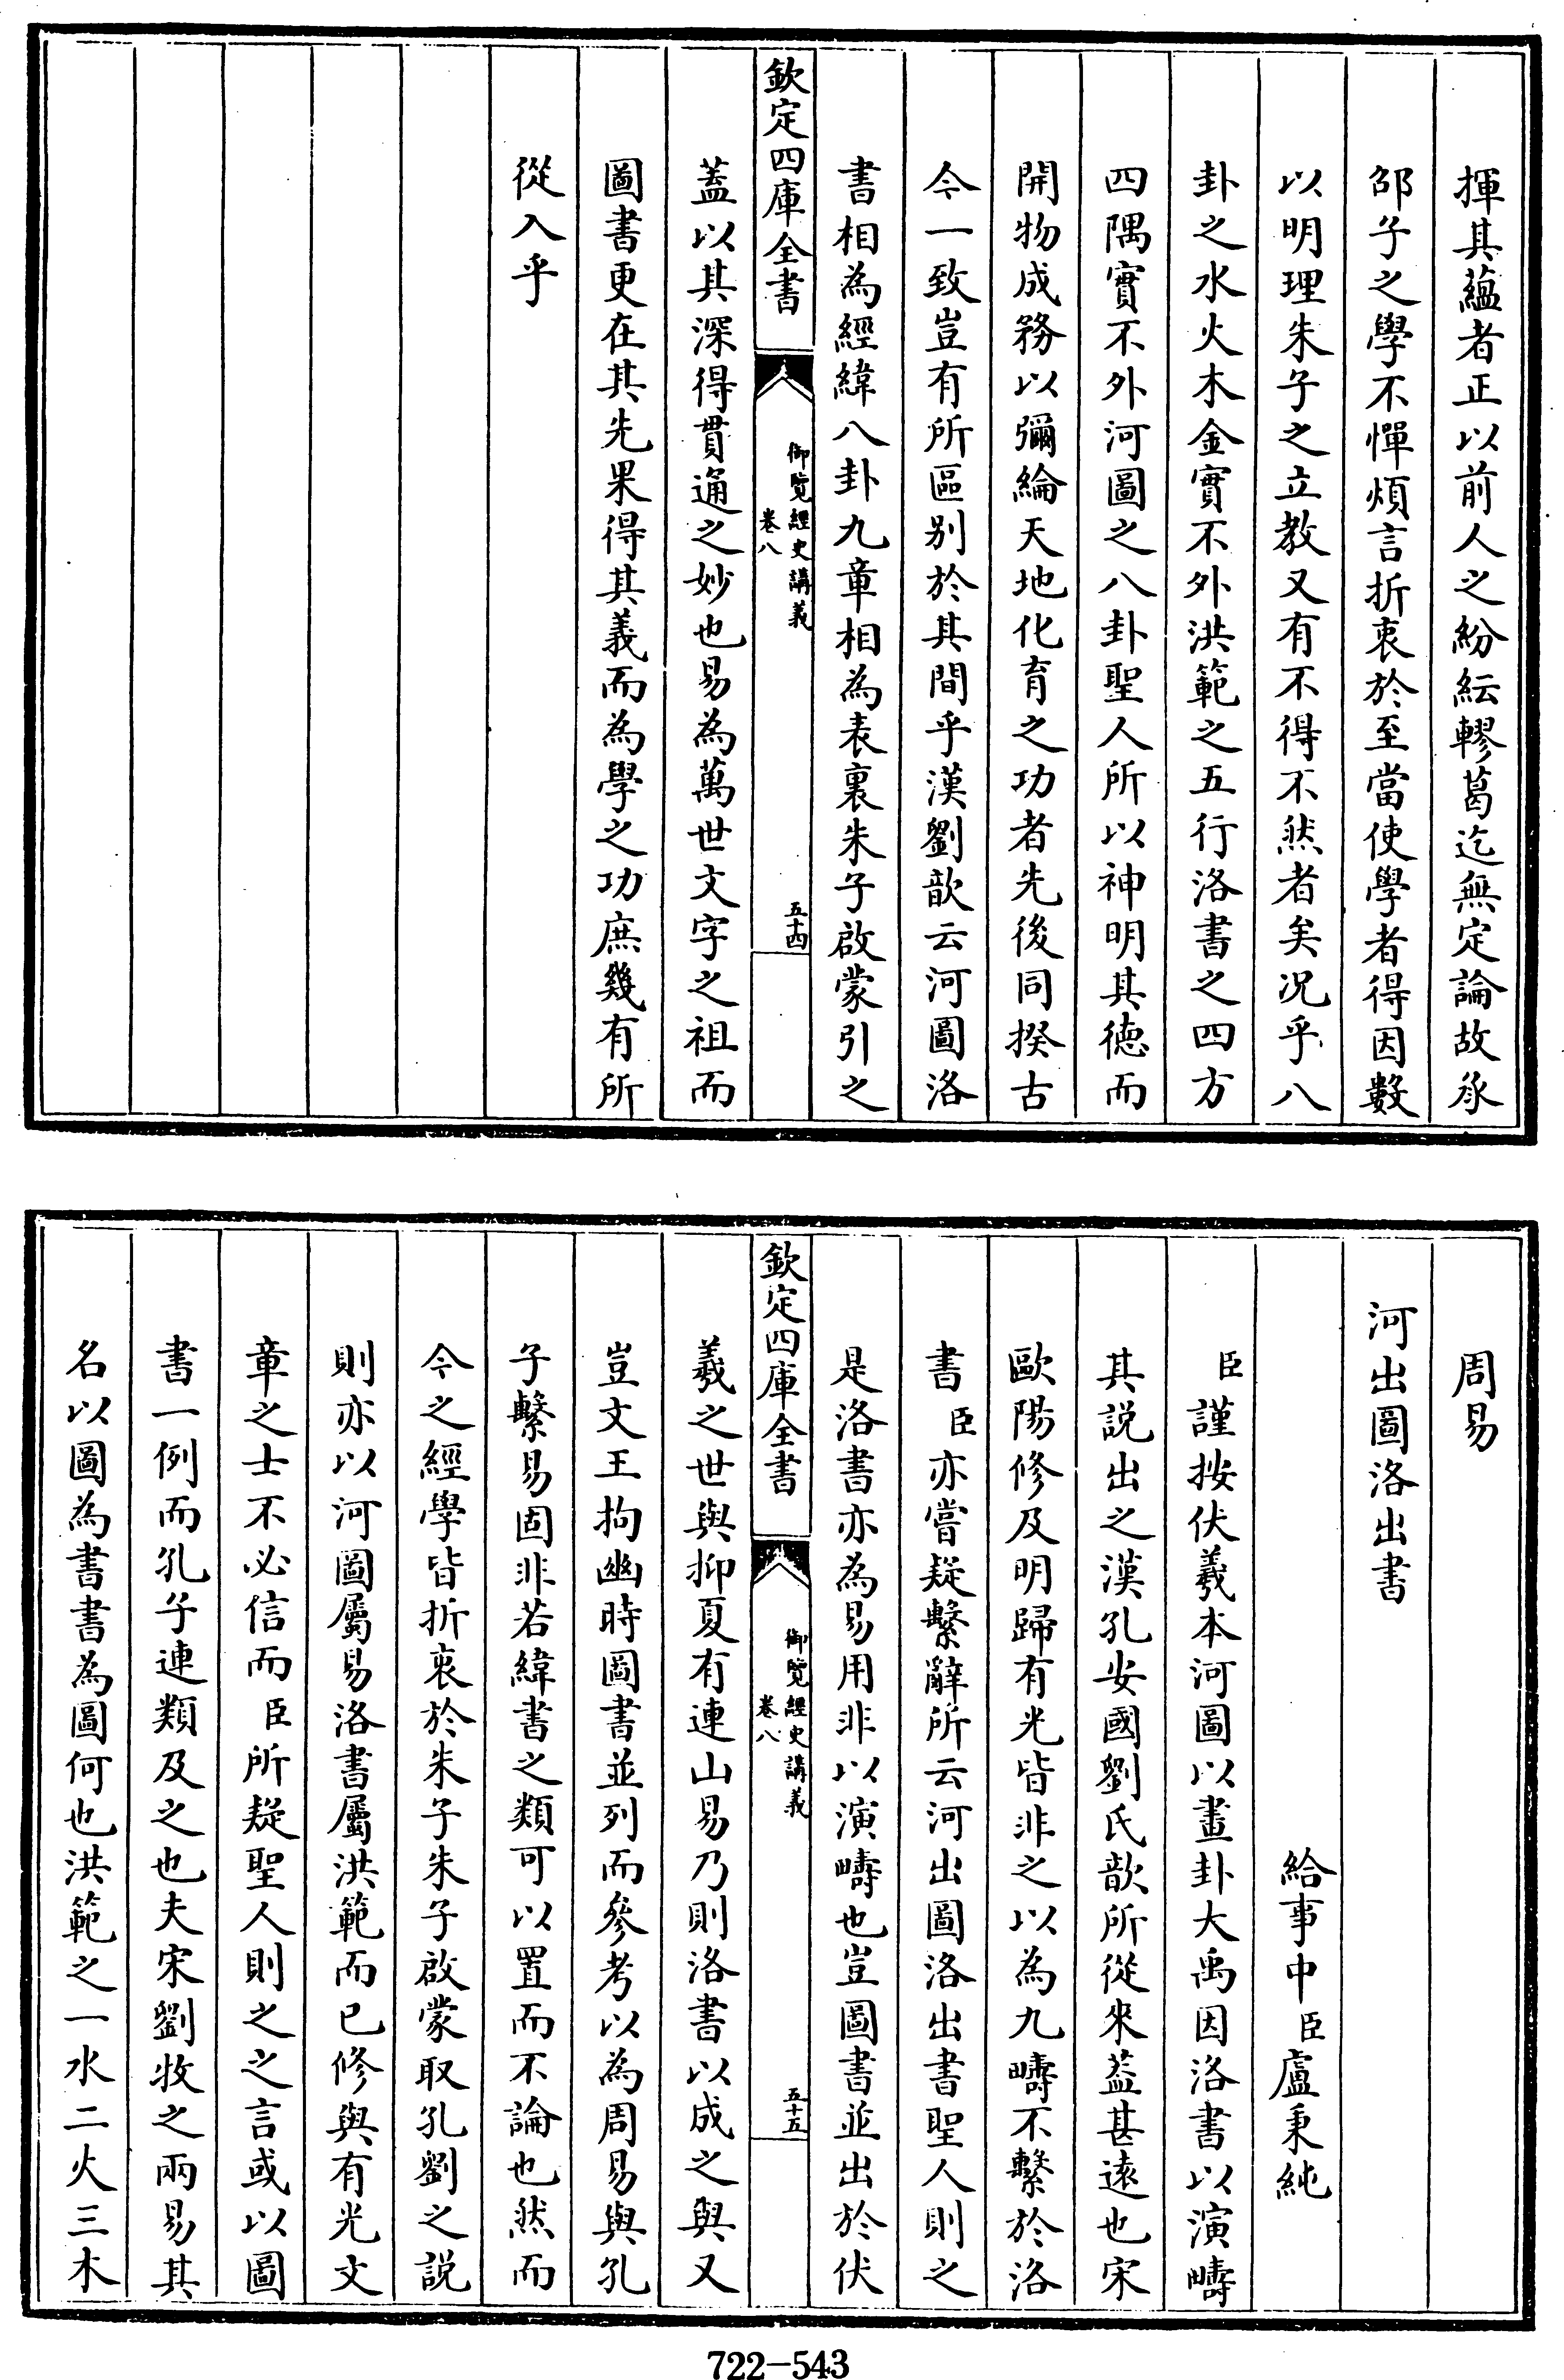 揮其蘊者正以前人之紛紜轇葛迄無定論故承
邵子之學不憚煩言折衷於至當使學者得因數
以明理朱子之立教又有不得不然者矣况乎八
卦之水火木金實不外洪範之五行洛書之四方
四隅實不外河圖之八卦聖人所以神明其徳而
開物成務以彌綸天地化育之功者先後同揆古
今一致豈有所區别於其間乎漢劉歆云河圖洛
書相為經緯八卦九章相為表裏朱子啟蒙引之
欽定四庫全書
御覽經史講義
卷八
五十四
蓋以其深得貫通之妙也易為萬世文字之祖而
圖書更在其先果得其義而為學之功庶幾有所
從入乎
周易
河出圖洛出書
給事中臣盧秉純
臣謹按伏羲本河圖以畫卦大禹因洛書以演疇
其説出之漢孔安國劉氏歆所從來葢甚遠也宋
歐陽修及明歸有光皆非之以為九疇不繫於洛
書臣亦嘗疑繫辭所云河出圖洛出書聖人則之
是洛書亦為易用非以演疇也豈圖書並出於伏
欽定四庫全書
御覽經史講義
卷八
五十五
羲之世與抑夏有連山易乃則洛書以成之與又
豈文王拘幽時圖書並列而參考以為周易與孔
子繫易固非若緯書之類可以置而不論也然而
今之經學皆折衷於朱子朱子啟蒙取孔劉之説
則亦以河圖屬易洛書屬洪範而已修與有光文
章之士不必信而臣所疑聖人則之之言或以圖
書一例而孔子連類及之也夫宋劉牧之兩易其
名以圖為書書為圖何也洪範之一水二火三木
722-543